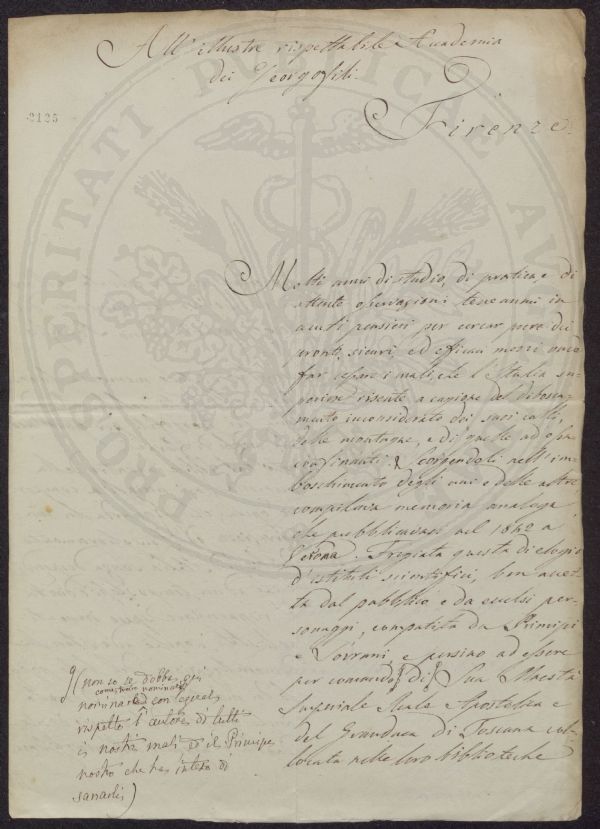 All' illustre rispettabile Accademia
dei Georgofili.
Firenze.
2125
PROSPERITATI PUBLICAE AU
Molti anni di studio, di pratica, e di
attente osservazioni tenermi in
acuti pensieri per cercar pure dei
pronti, sicuri ed efficaci mezzi onde
far cessare i mali, che l'Italia su-
periore risente a cagione del disbosca-
mento inconsiderato dei suoi colli,
delle montagne, e di quelle ad essa
confinanti. Scorgendoli nell'im-
boschimento degli uni e delle altre
compilava memoria analoga
che pubblicavasi nel 1842 a
Verona. Fregiata questa di elogio
d'istituti scientifici, ben accet-
ta dal pubblico e da eccelsi per-
sonaggi, compatita da Principi
e Sovrani e persino ad essere
per comando di Sua Maestà
Imperiale Reale Apostolica e
del Granduca di Toscana col-
locata nelle loro biblioteche
(non so se debba qui
come nominare
nominarlo con egual
rispetto l'autore di tutti
i nostri mali e il Principe
nostro che ha inteso di
sanarli)